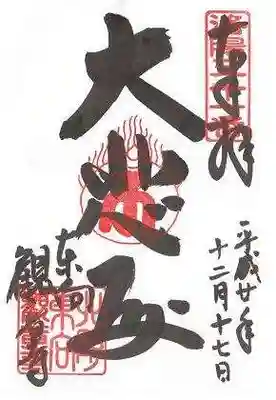 奉拝
平成廿年
十二月十七日
大悲殿
東向
観音寺